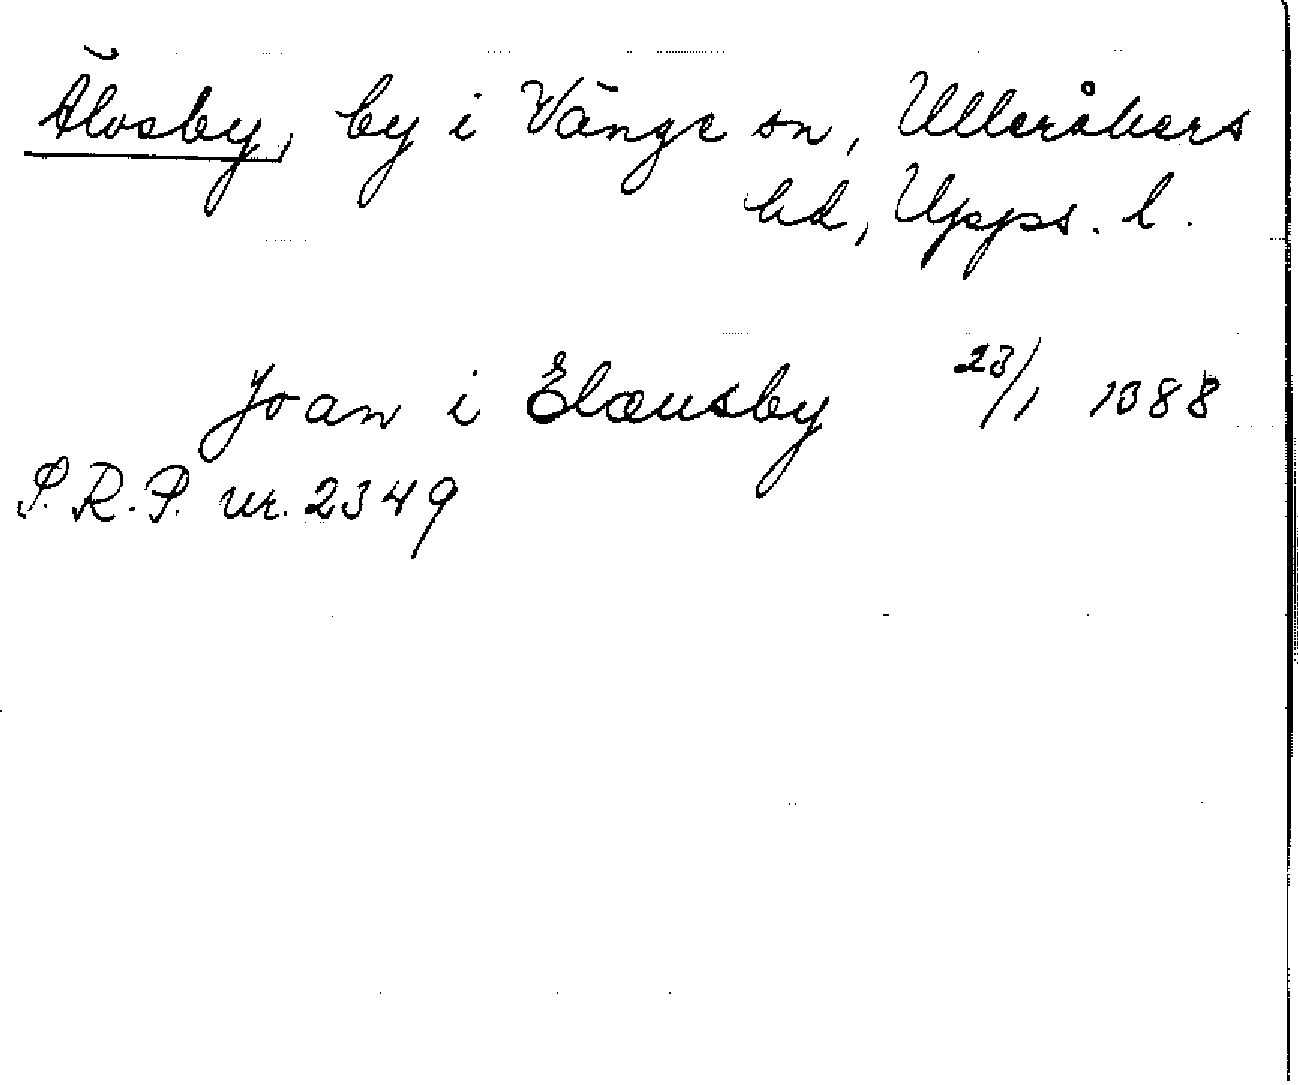 Älvsby, by i Vänge sn, Ulleråkers
hd, Upps. l.
Joan i Elæusby 23/1 1388
S.R.P. nr. 2349